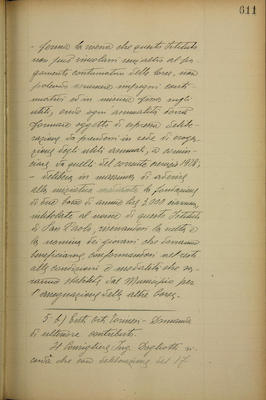 611
- ferma la norma che questo Istituto
non può vincolarsi con altri al pa-
gamento continuativo della borsa, non
potendo assumere impegni conti-
nuativi ed in misura fissa sugli
utili, onde ogni annualità dovrà
formare oggetto di espressa delibe-
razione da prendersi in sede di eroga-
zione degli utili annuali, a comin-
ciare da quelli del corrente esercizio 1928;
- delibera in massima di aderire
alla iniziativa mediante la fondazione
di due borse di annue lire 2.000 ciascuna
intitolate al nome di questo Istituto
di San Paolo, riservandosi la scelta e
la nomina dei giovani che dovranno
beneficiarne conformandosi nel resto
alle condizioni e modalità che sa-
ranno stabilite dal Municipio per
l'assegnazione delle altre borse.
5 b) Ente Orti Torinesi - Domanda
di ulteriore contributo.
Il Consigliere Ing. Orglietti ri-
corda che con deliberazione del 17